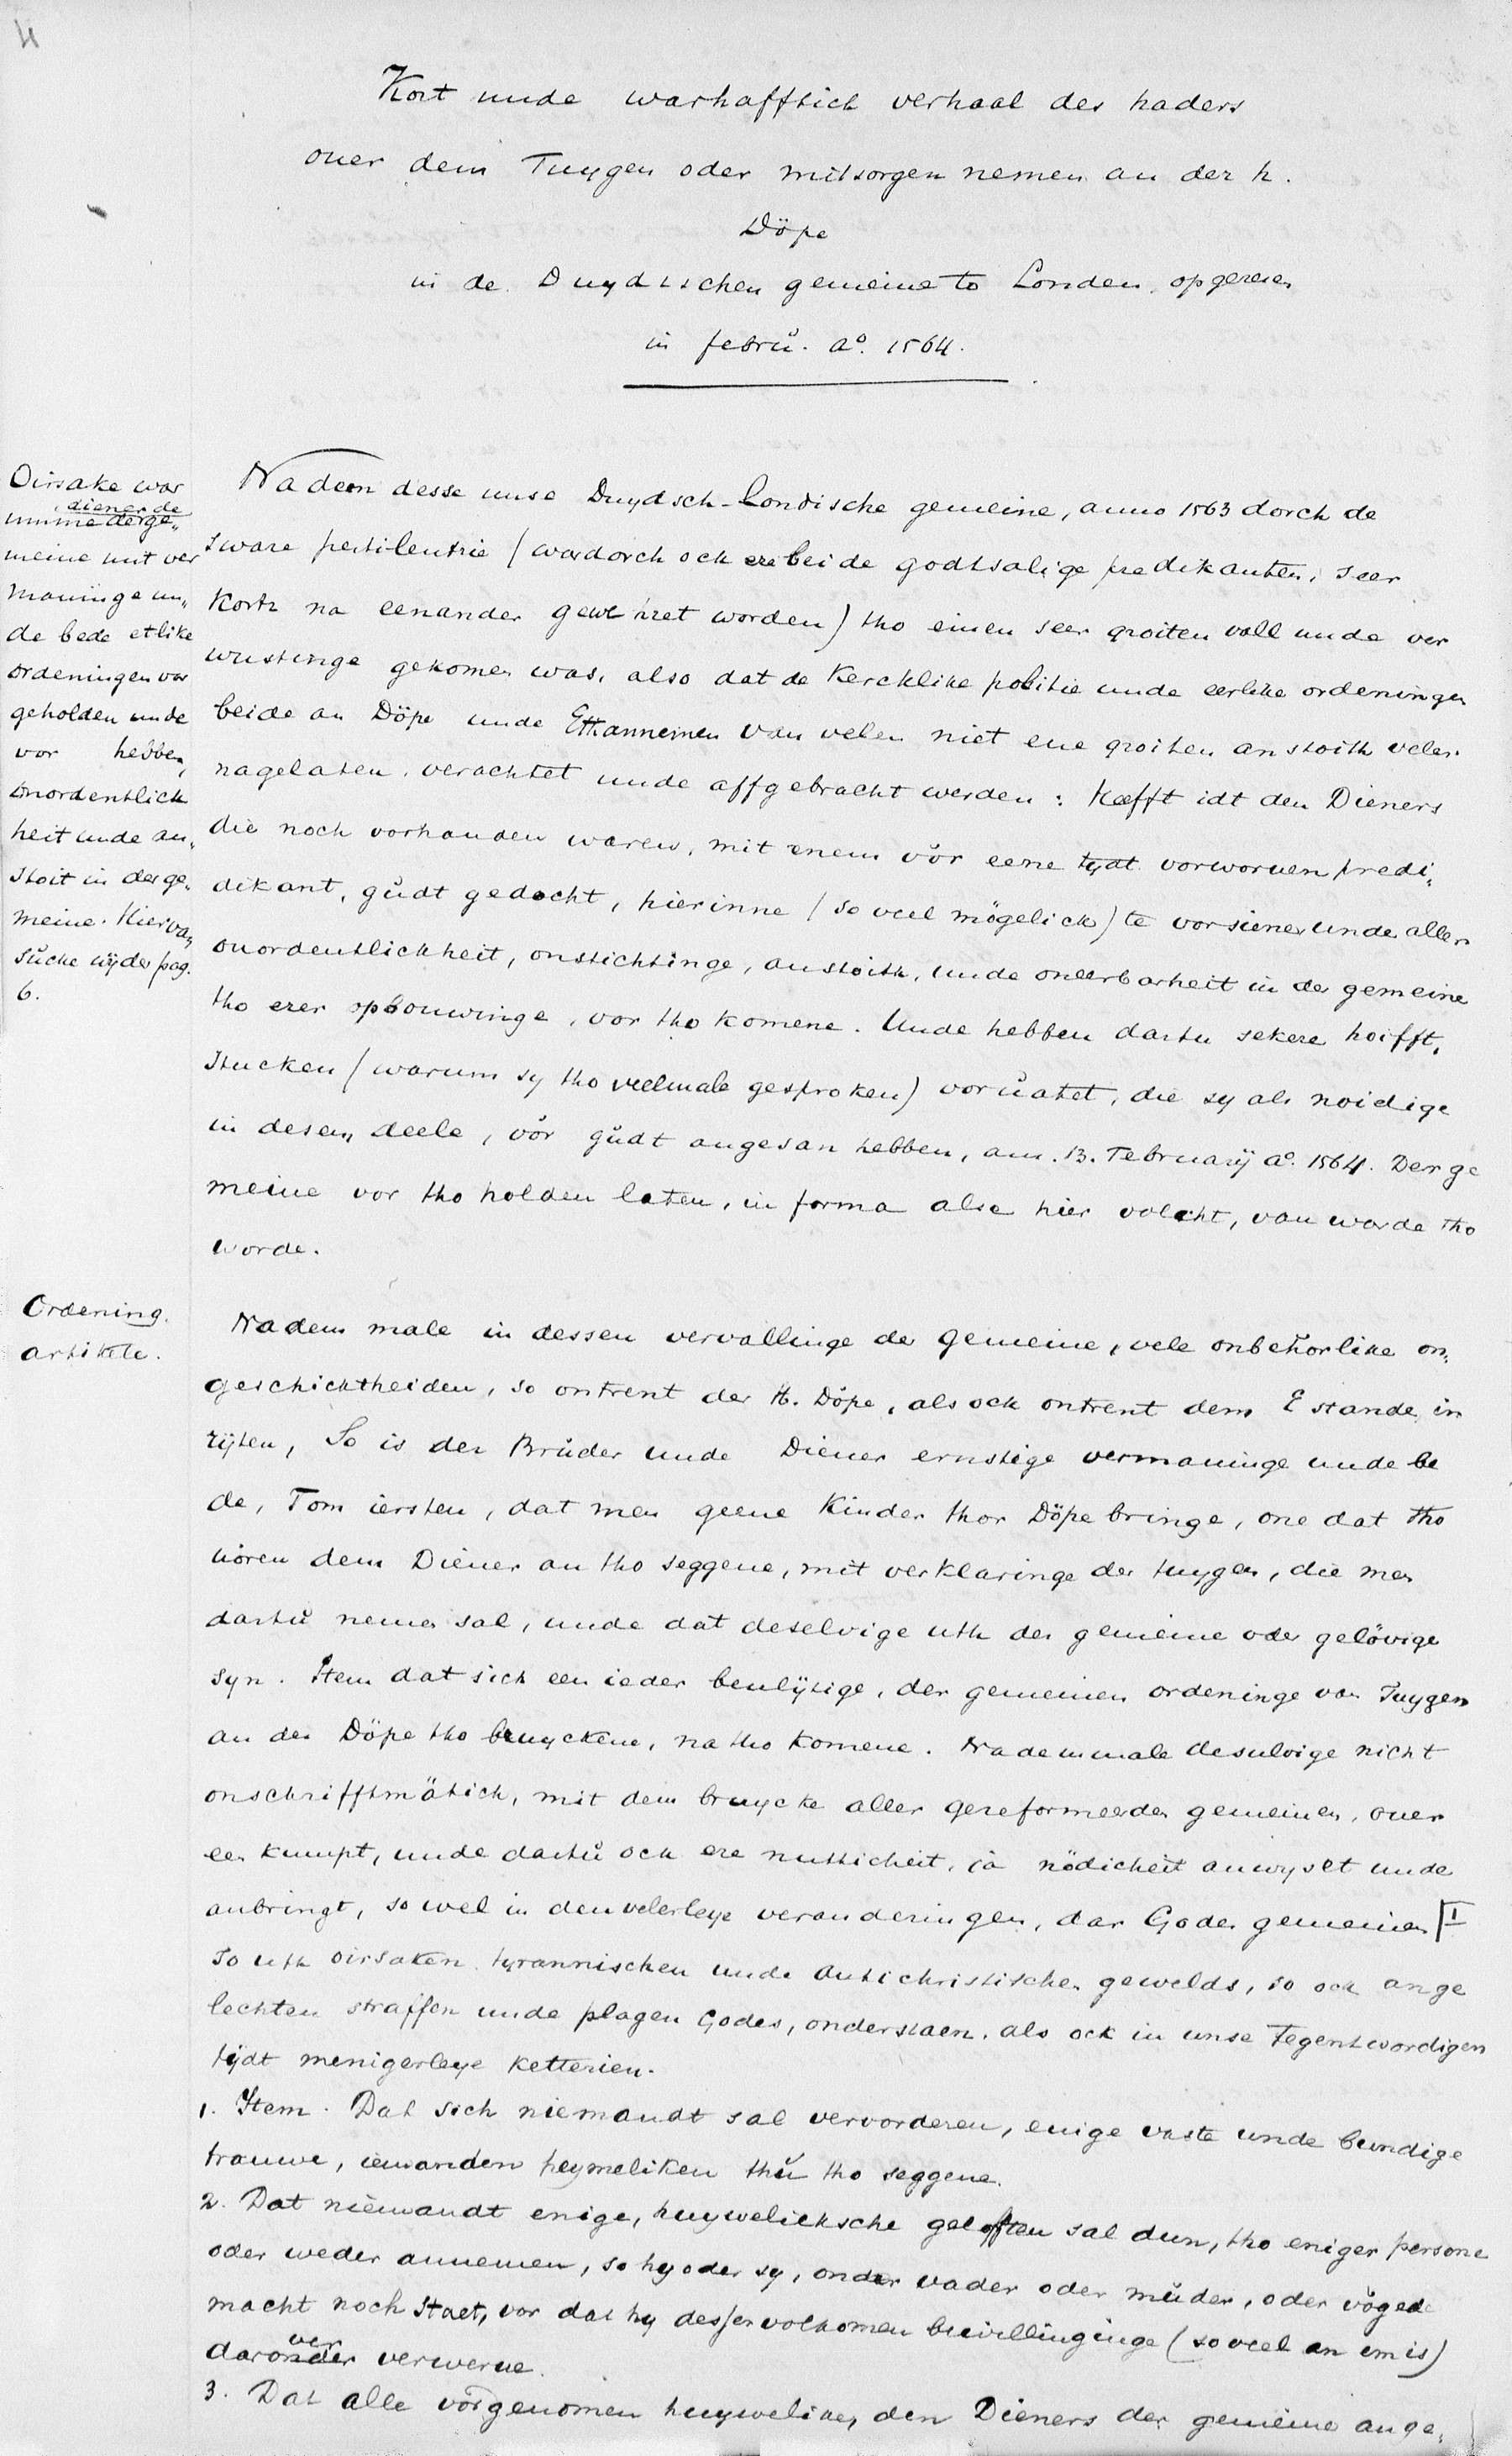 4
Kort unde warhafftich verhaal des haders
over dem Tuygen oder mitsorgen nemen an der h.
Döpe
in de Duydschen gemeine to Londen, opgeresen
in febrŭ. a°. 1564.
Oirsake war
diener de
umme der ge„
meine mit ver
maninge un„
de bede etlike
ordeningen vor
geholden unde
vor hebben,
onordentlick
heit unde an„
stoit in der ge„
meine. Hiervan
sŭcke wÿder pag.
6.
Nadem desse unse Duydsch-Londische gemeine, anno 1563 dorch de
sware pestilentzie (wordorch ock ere beide godtsalige predikanten, seer
Kortz na eenander gewe[...]ret worden) tho einen seer groiten vall unde ver
wustinge gekomen was, also dat de Kercklike politie unde eerlike ordeningen
beide an Döpe unde Ettannemen van velen niet ene groiten anstoith velen
nagelaten, verachtet unde affgebracht werden: Hefft idt den Dieners
die noch vorhanden waren, mit enem vŏr eene tydt vorworven predi„
dikant, gŭdt gedocht, hierinne (so veel mögelick) te vorsienen unde allen
onordentlickheit, onstichtinge, anstoith, unde oneerbarheit in der gemeine
tho erer opbouwinge, vor tho komene. Unde hebben dartu sekere hoifft„
stucken (warum sy tho veelmale gesproken) vorŭatet, die sy als noidige
in desen deele, vŏr gŭdt angesan hebben, am. 13. Februarÿ a°. 1564. Der ge
meine vor tho holden laten, in forma alse hier volcht, van worde tho
worde.
Ordening.
artikele.
Nadem male in dessen vervallinge der gemeine, vele onbehorlike on„
geschicktheiden, so ontrent der H. Döpe, als ock ontrent dem Estande in
rÿten, So is der Brŭder unde Diener ernstige vermaninge unde be
de, Tom iersten, dat men geene Kinder thor Döpe bringe, one dat tho
vören dem Diener an tho seggene, mit verklaringe der tuygen, die men
dartŭ nemen sal, unde dat deselvige uth der gemeine oder gelövige
syn. Item dat sich een ieder benlÿtige, der gemeinen ordeninge van Tuygen
an der Döpe tho bruyckene, na tho komene. Nademmale desulvige nicht
onschrifftmätich, mit dem bruycke aller gereformeerden gemeinen, over
een kumpt, unde dartŭ ock ere nutticheit, ja nödicheit anwyset unde
anbringt, so wel in den velerleye veranderingen, dar Godes gemeinen I
so uth oirsaken tyrannischen unde antichristischen gewelds, so ock ange
lechten straffen unde plagen Godes, onderstaen, als ock in unse Tegentwordigen
tÿdt menigerleye ketterien.
1. Item. Dat sich niemandt sal vervorderen, enige vaste unde bundige
trauwe, iemanden heymeliken thŭ tho seggene.
2. Dat niemandt enige, huyweliksche geloften sal dun, tho eniger persone
oder weder annemen, so hy oder sy, onder vader oder mŭder, oder vögede
macht noch staet, vor dat hy desser volkomen bewillinginge (so veel an em is)
ver
daronder verwerve.
3. Dat alle vŏrgenomen huyweliken, den Dieners der gemeine ange„